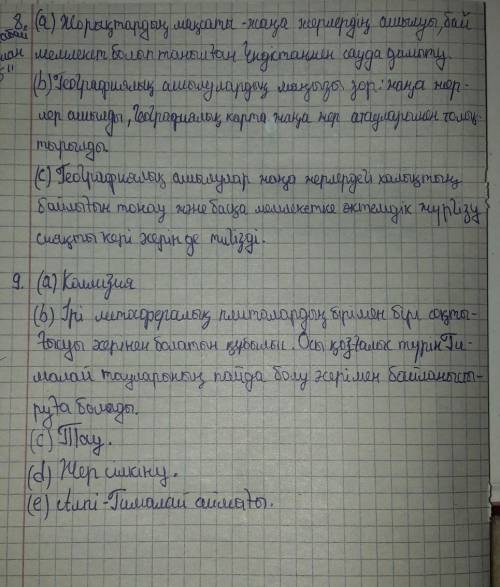 8. (a) Жорықтардың мақсаты - жаңа жерлердің ашылуы, бай
мемлекет болып танылған Үндістанмен сауда дамыту.
(b) Географиялық ашылулардың маңызы зор: жаңа жер-
лер ашылды, Географиялық карта жаңа жер атауларымен толық-
тырылды
(c) Географиялық ашылулар жаңа жерлердегі халықтың
байлығын тонау және басқа мемлекетке әктемдік жүргізу
сияқты кері әсерін де тигізді.
9. (a) Коллизия
(b) Ірі литосфералық плиталардың бірімен бірі соқты-
ғысуы әсерінен болатын құбылыс. Осы қозғалыс түрін Ги-
малай тауларының пайда болу жерімен байланысты-
руға болады.
(c) Тау.
(d) Жер сілкіну.
(e) Альпі-Гималай аймағы.